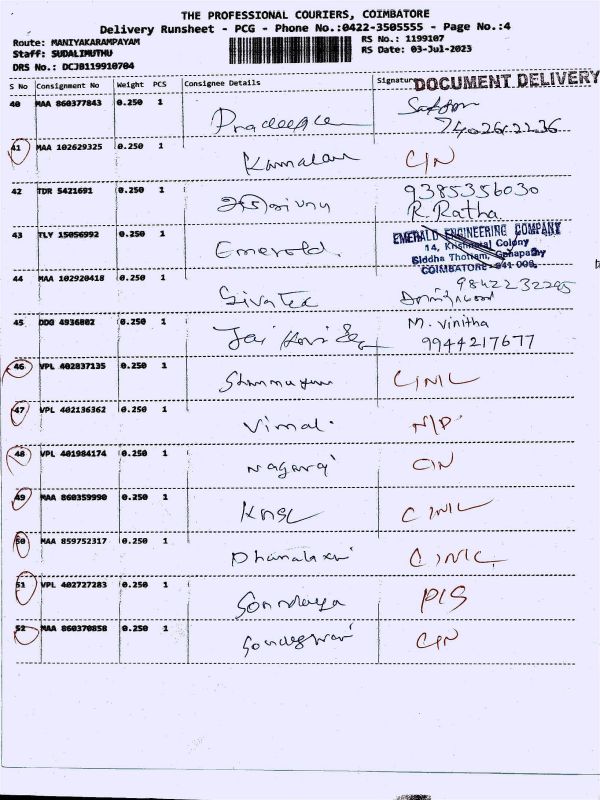 THE PROFESSIONAL COURIERS, COIMBATORE
Delivery Runsheet - PCG - Phone No.:0422-3505555 - Page No.:4
Route: MANIYAKARAMPAYAM
RS No.: 1199107
Staff: SUDALIMUTHU
RS Date: 03-Jul-2023
DRS No.: DCJB119910704
S No Consignment No Weight PCS Consignee Details Signature
DOCUMENT DELIVERY
40 MAA 860377843 0.250 1
Pradeepa
7402622236
41 MAA 102629325 0.250 1
Kamalam C/N
42 TDR 5421691 0.250 1
9385356030
R. Ratha
43 TLY 15056992 0.250 1
Emerald.
EMERALD ENGINEERING COMPANY
14, Krishnaraj Colony
Siddha Thottam, Ganapathy
COIMBATORE - 641 006.
44 MAA 102920418 0.250 1
Siva Tex
45 DDG 4936802 0.250 1
Jai
M. Vinitha
9944217677
46 VPL 402837135 0.250 1
C/N/C
47 VPL 402136362 0.250 1
Vimal. N/P
48 VPL 401984174 0.250 1
Nagaraj C/N
49 MAA 860359990 0.250 1
C/N/C
50 MAA 859752317 0.250 1
C/N/C
51 VPL 402727283 0.250 1
52 MAA 860370858 0.250 1
C/N